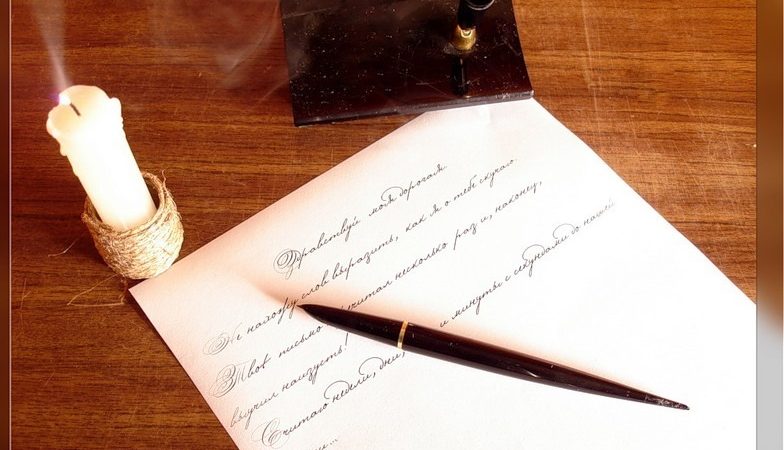 Здравствуй моя дорогая.
Не нахожу слов выразить, как я о тебе скучаю.
Твоё письмо читал несколько раз и, наконец,
выучил наизусть!
Считаю недели, дни, и минуты с секундами до нашей